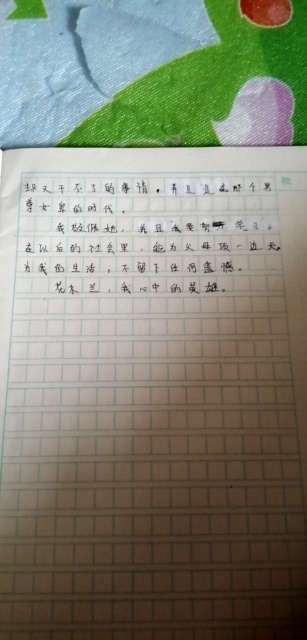 却又干不了的事情。并且是在那个男
尊女卑的时代。
我敬佩她,并且我要学习。
在以后的社会里,能为父母顶一边天,
为我的生活,不留下任何遗憾。
花木兰,我心中的英雄。